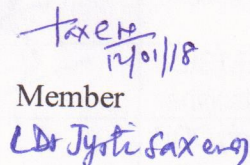 Saxena
12/01/18
Member
(Dr Jyoti Saxena)